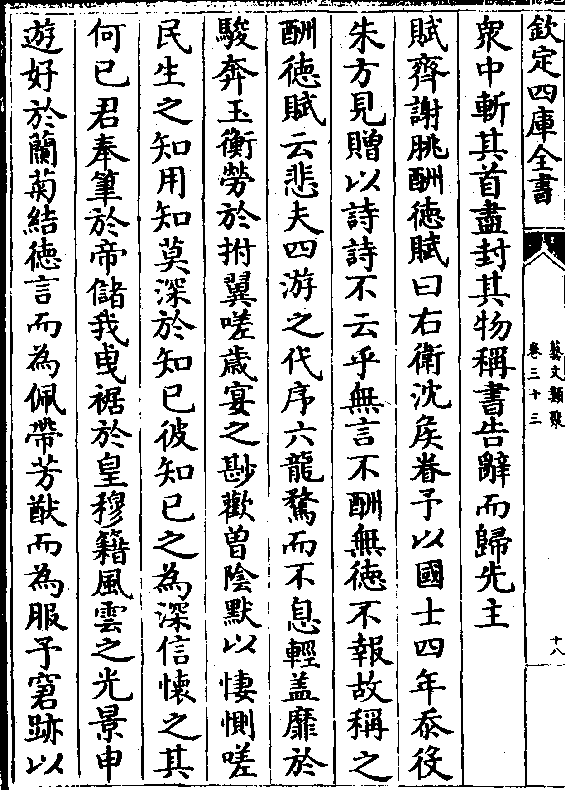 欽定四庫全書
藝文類聚
卷三十三
十八
衆中斬其首盡封其物稱書告辭而歸先主
賦齊謝朓酬徳賦曰右衛沈侯眷予以國士四年忝役
朱方見贈以詩詩不云乎無言不酬無徳不報故稱之
酬徳賦云悲夫四游之代序六龍騖而不息輕盖靡於
駿奔玉衡勞於拊翼嗟歲宴之尠歡曾陰默以悽惻嗟
民生之知用知莫深於知已彼知已之為深信懐之其
何已君奉筆於帝儲我曵裾於皇穆籍風雲之光景申
遊好於蘭菊結徳言而為佩帶芳猷而為服予窘跡以